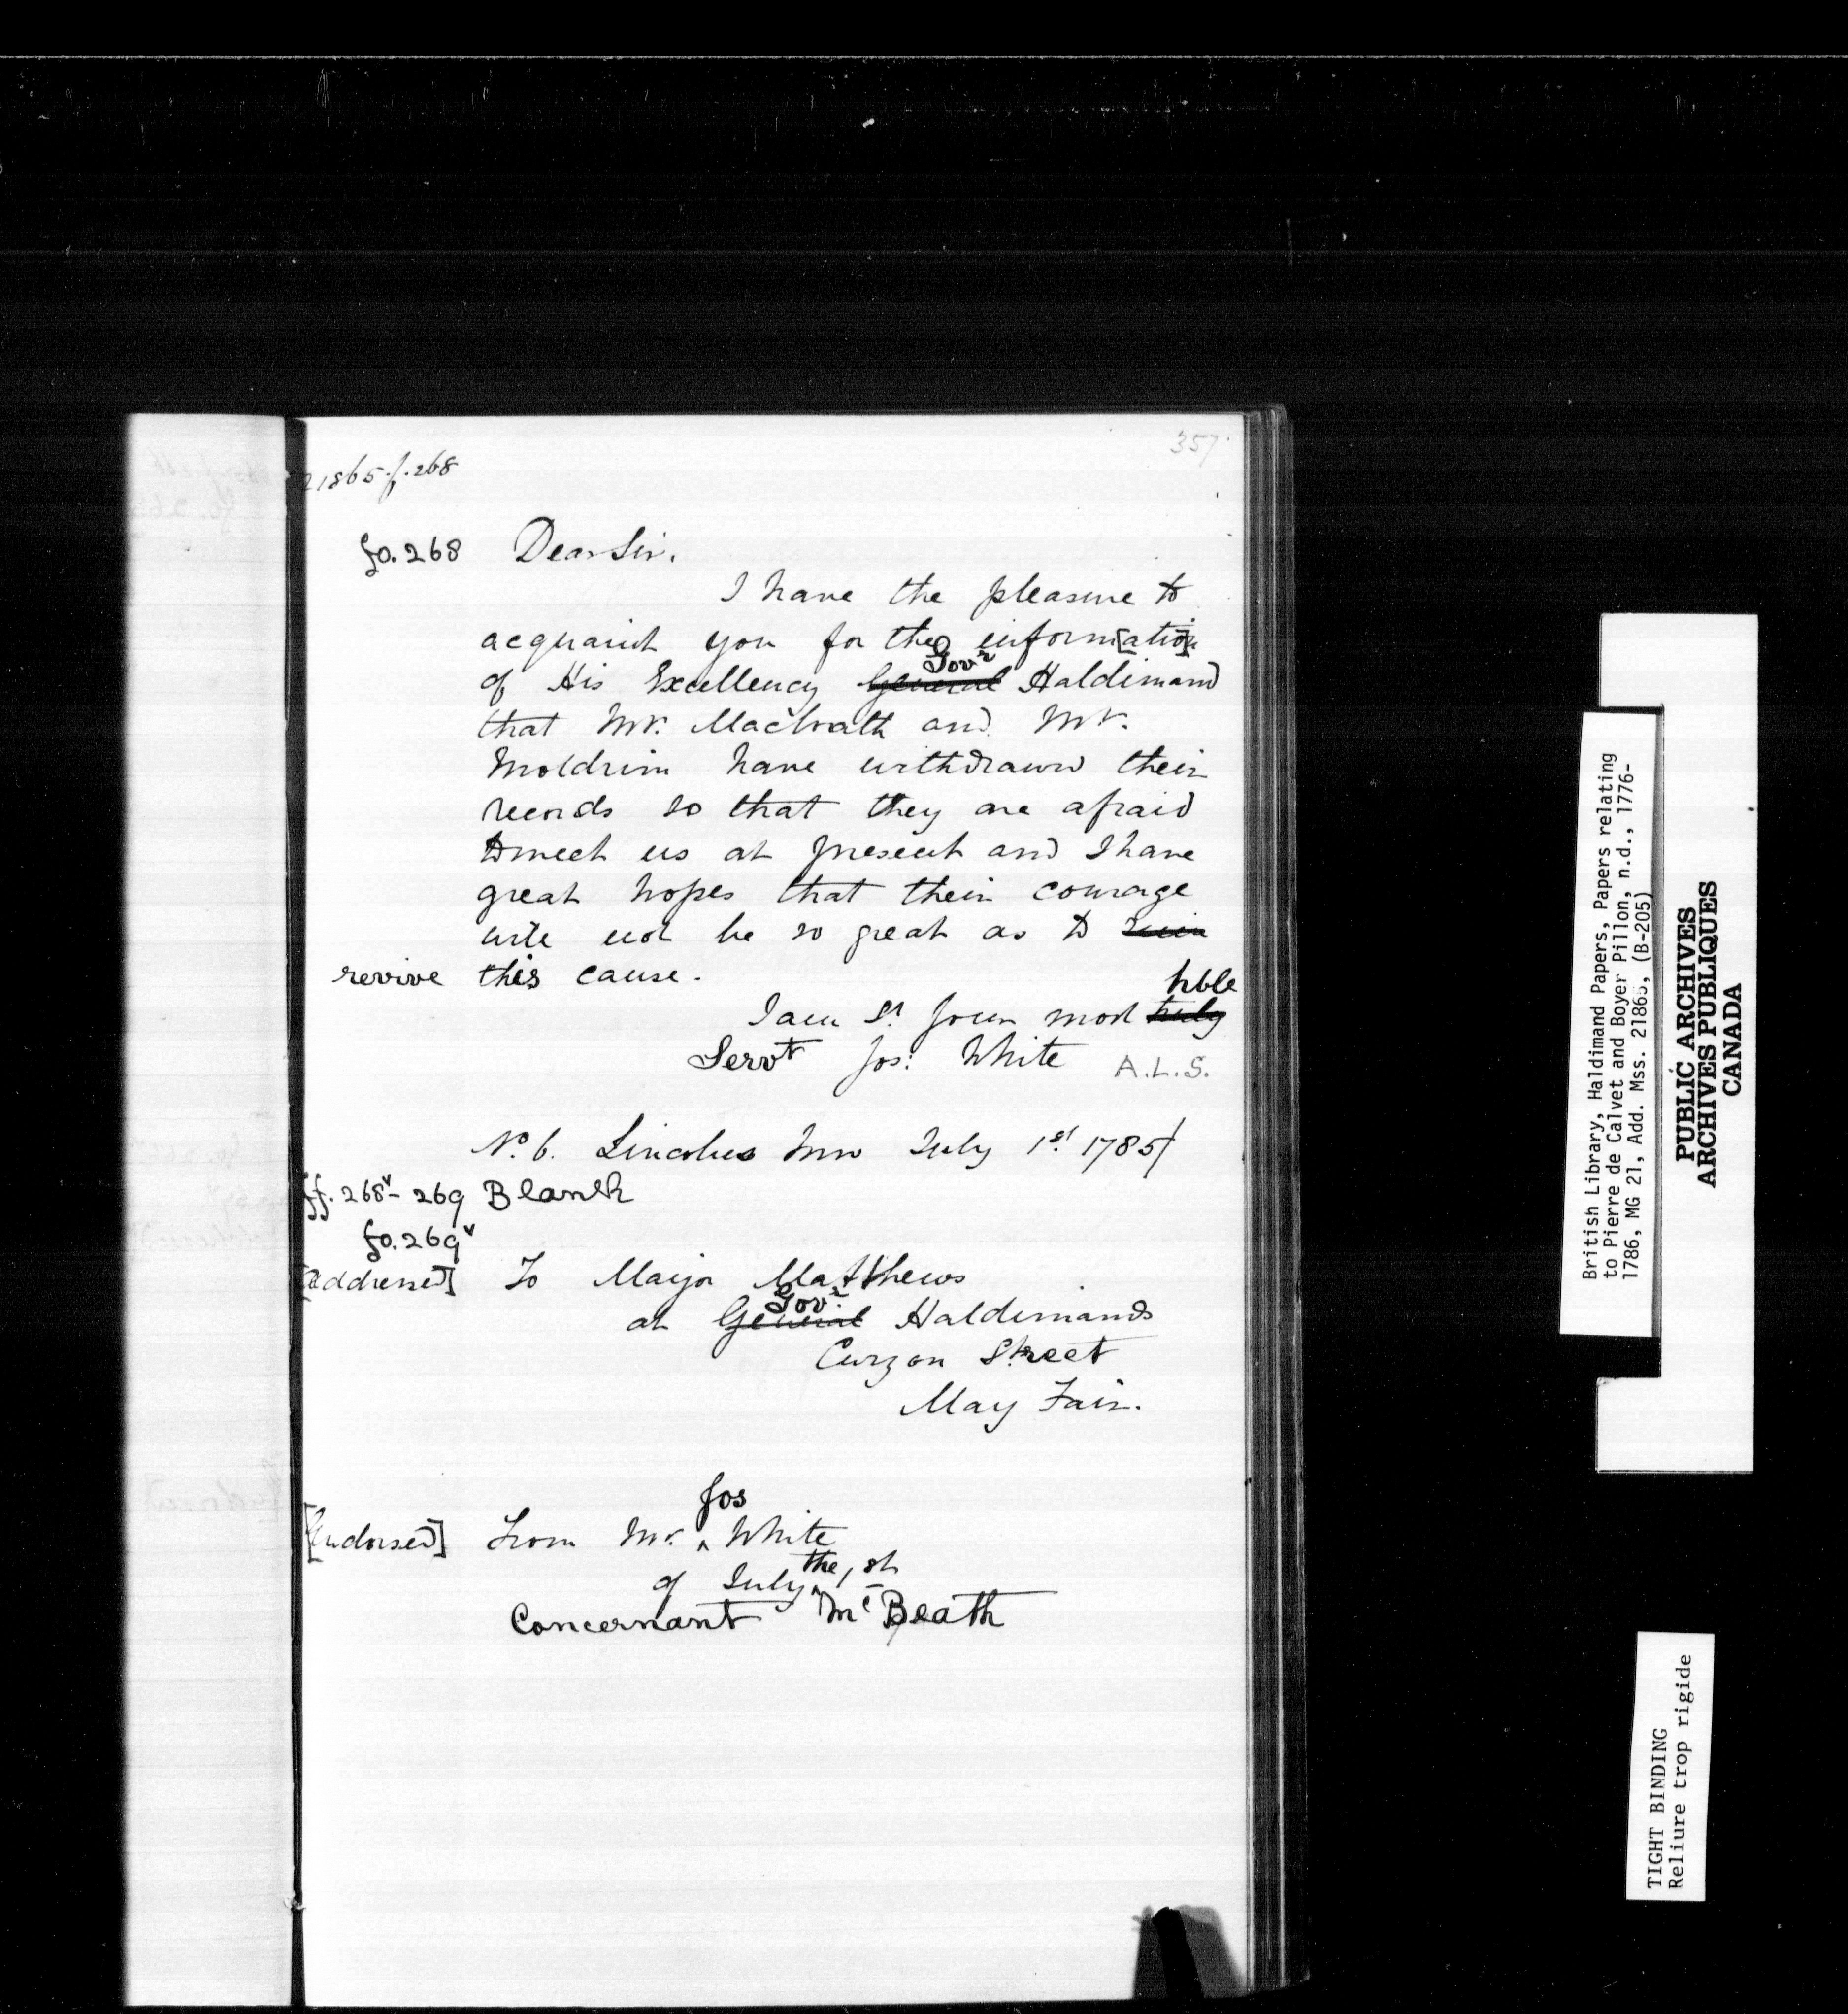 357
21865.f.268
fo.268 Dear Sir.
I have the pleasure to
acquaint you for the inform[ation]
of His Excellency ~~General~~ Govr Haldimand
that Mr. MacIvath and Mr.
Moldrim have withdrawn their
records so that they are afraid
to meet us at present and I have
great hopes that their courage
will not be so great as to
revive this cause.
I am Sr. Your most ~~truly~~ hble
Servt Jos: White A.L.S.
No. 6. Lincolns Inn July 1st. 1785/
ff. 268v - 269 Blank
fo. 269v
[addressed] To Major Matthews
at ~~General~~ Govr. Haldimands
Curzon Street
May Fair.
[Endorsed] From Mr. ^ Jos White
of July ^ the 1st
Concernant Mc Beath
British Library, Haldimand Papers, Papers relating
to Pierre de Calvet and Boyer Pillon, n.d., 1776-
1786, MG 21, Add. Mss. 21865, (B-205)
PUBLIC ARCHIVES
ARCHIVES PUBLIQUES
CANADA
TIGHT BINDING
Reliure trop rigide